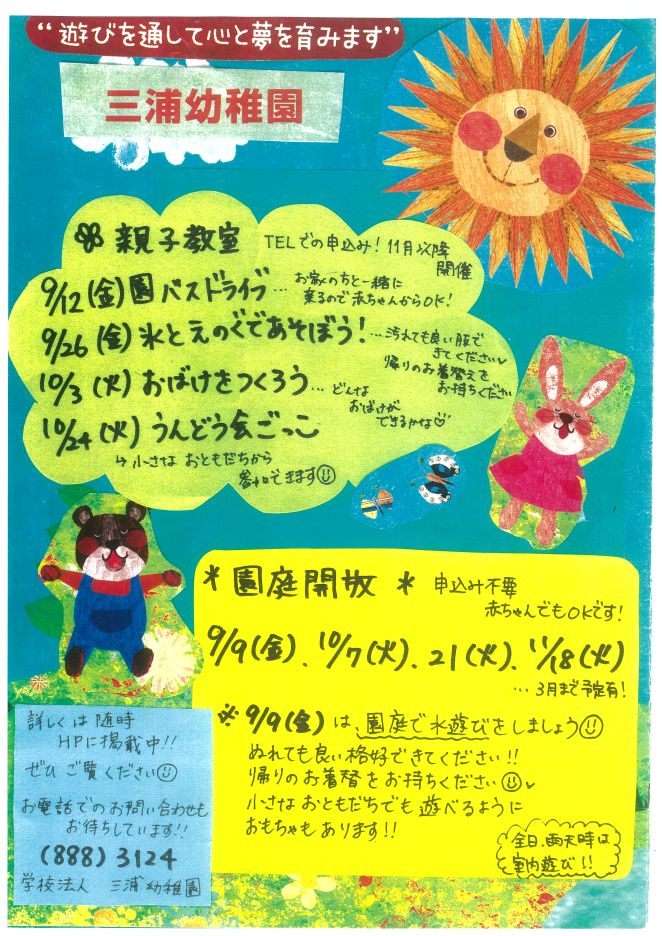 “遊びを通して心と夢を育みます”
三浦幼稚園
親子教室 TELでの申込み！11月以降
開催
9/12(金)園バスドライブ…お家の方と一緒に
来るので赤ちゃんからOK！
9/26(金)水とえのぐであそぼう！…汚れても良い服で
きてください
帰りのお着替えを
お持ちください
10/3(火)おばけをつくろう…どんな
おばけが
できるかな
10/24(火)うんどう会ごっこ
↳小さなおともだちから
参加できます
＊園庭開放＊ 申込み不要
赤ちゃんでもOKです！
9/9(金)、10/7(火)、21(火)、11/18(火)
…3月まで予定有！
※9/9(金)は、園庭で水遊びをしましょう
ぬれても良い格好できてください！！
帰りのお着替をお持ちください
小さなおともだちでも遊べるように
おもちゃもあります！！
全日、雨天時は
室内遊び！！
詳しくは随時
HPに掲載中！！
ぜひご覧ください
お電話でのお問い合わせも
お待ちしています！！
(888)3124
学校法人 三浦幼稚園